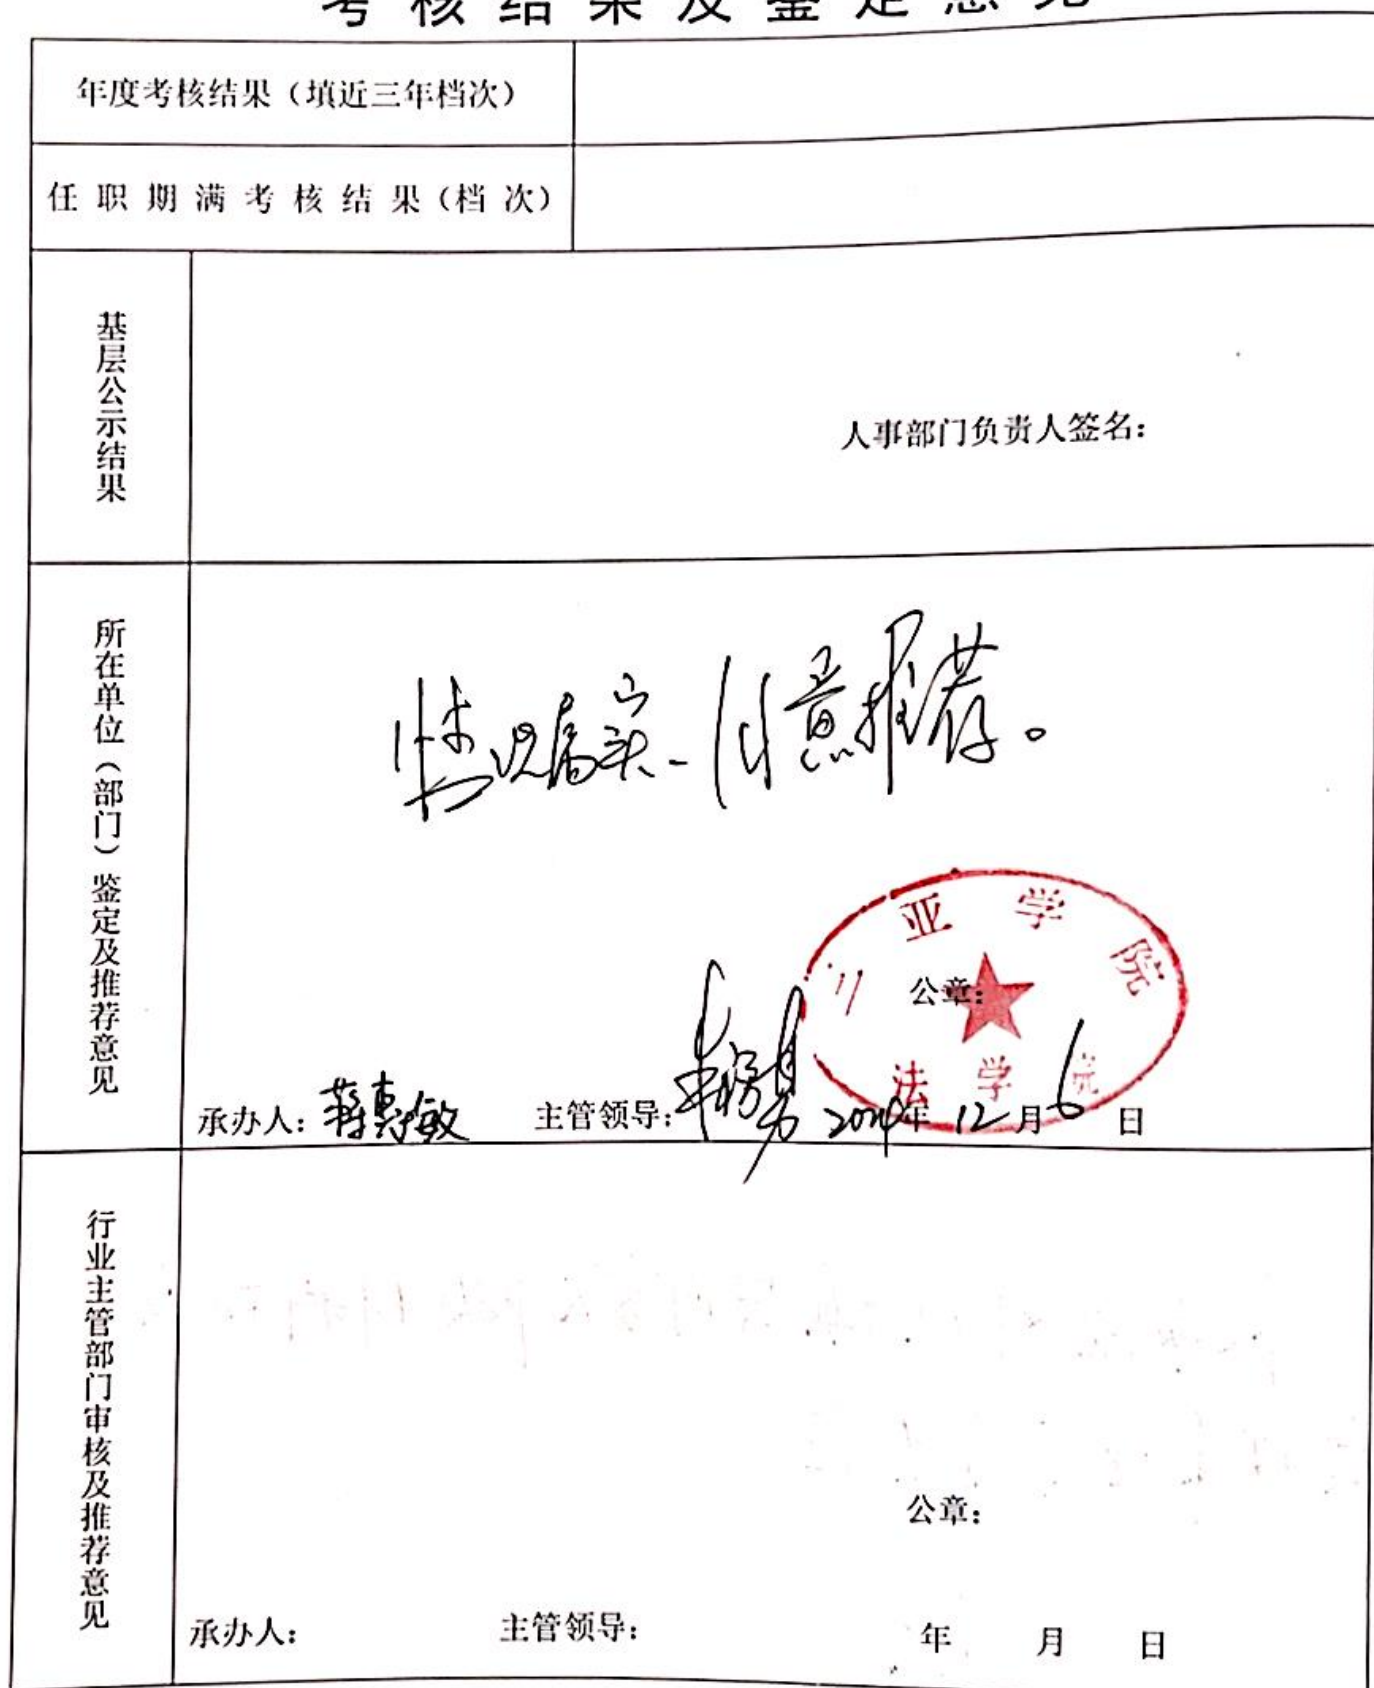 考核结果及鉴定意见
年度考核结果（填近三年档次）
任职期满考核结果（档次）
基层公示结果
人事部门负责人签名：
所在单位（部门）鉴定及推荐意见
情况属实，同意推荐。
三亚学院
公章：
法学院
承办人：蒋惠敏
主管领导：
年12月6日
行业主管部门审核及推荐意见
公章：
承办人：
主管领导：
年 月 日